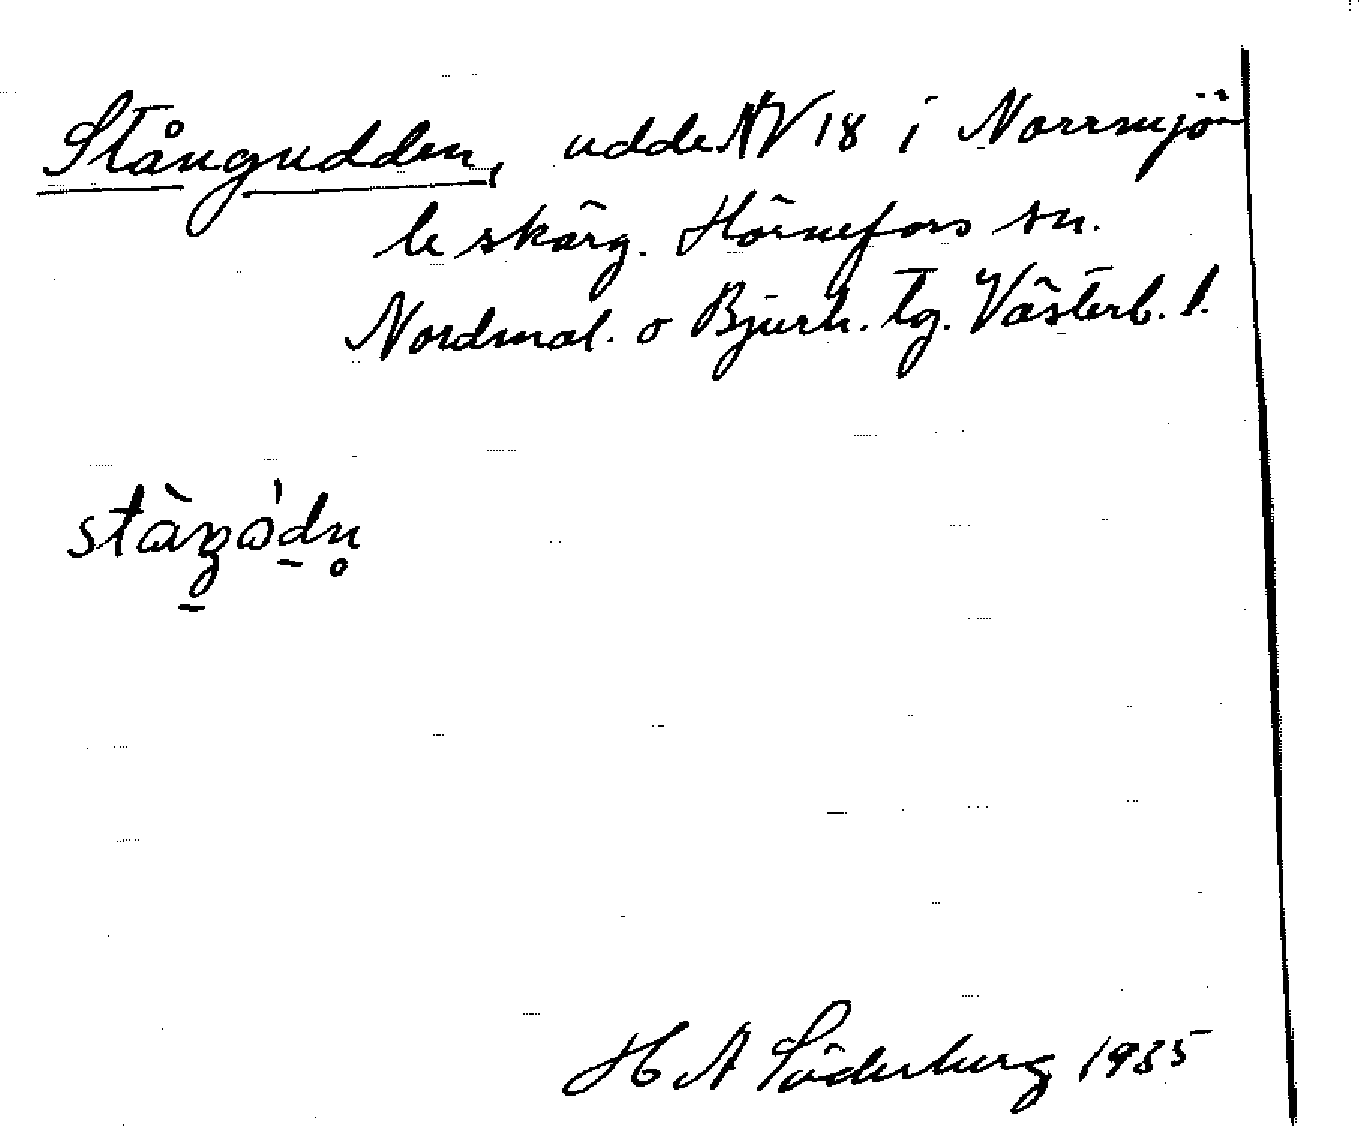 Stångudden, udde NV 18 i Norrmjö-
le skärg. Hörnefors sn.
Nordmal. o Bjurh. tg. Västerb. l.
H A Söderberg 1935